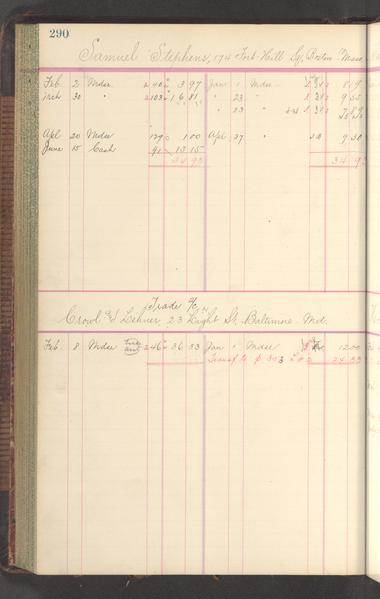 290
Samuel Stephens, 174 Fort Hill Sq, Boston Mass
Feb 2 Mdse 2 40 3 97 Jan 1 Mdse 8 19
Mch 30 " 2 103 16 81 " 23 " 9 55
" 23 "
Apl 20 Mdse 129 1 00 Apl 27 " 9 30
June 15 Cash 91 13 15
34 93 34 93
Trade a/c
Crowl & Lehner, 23 Light St, Baltimore Md.
Feb. 8 Mdse 246 36 33 Jan 1 Mdse 12 00
Transf to p 303 24 33